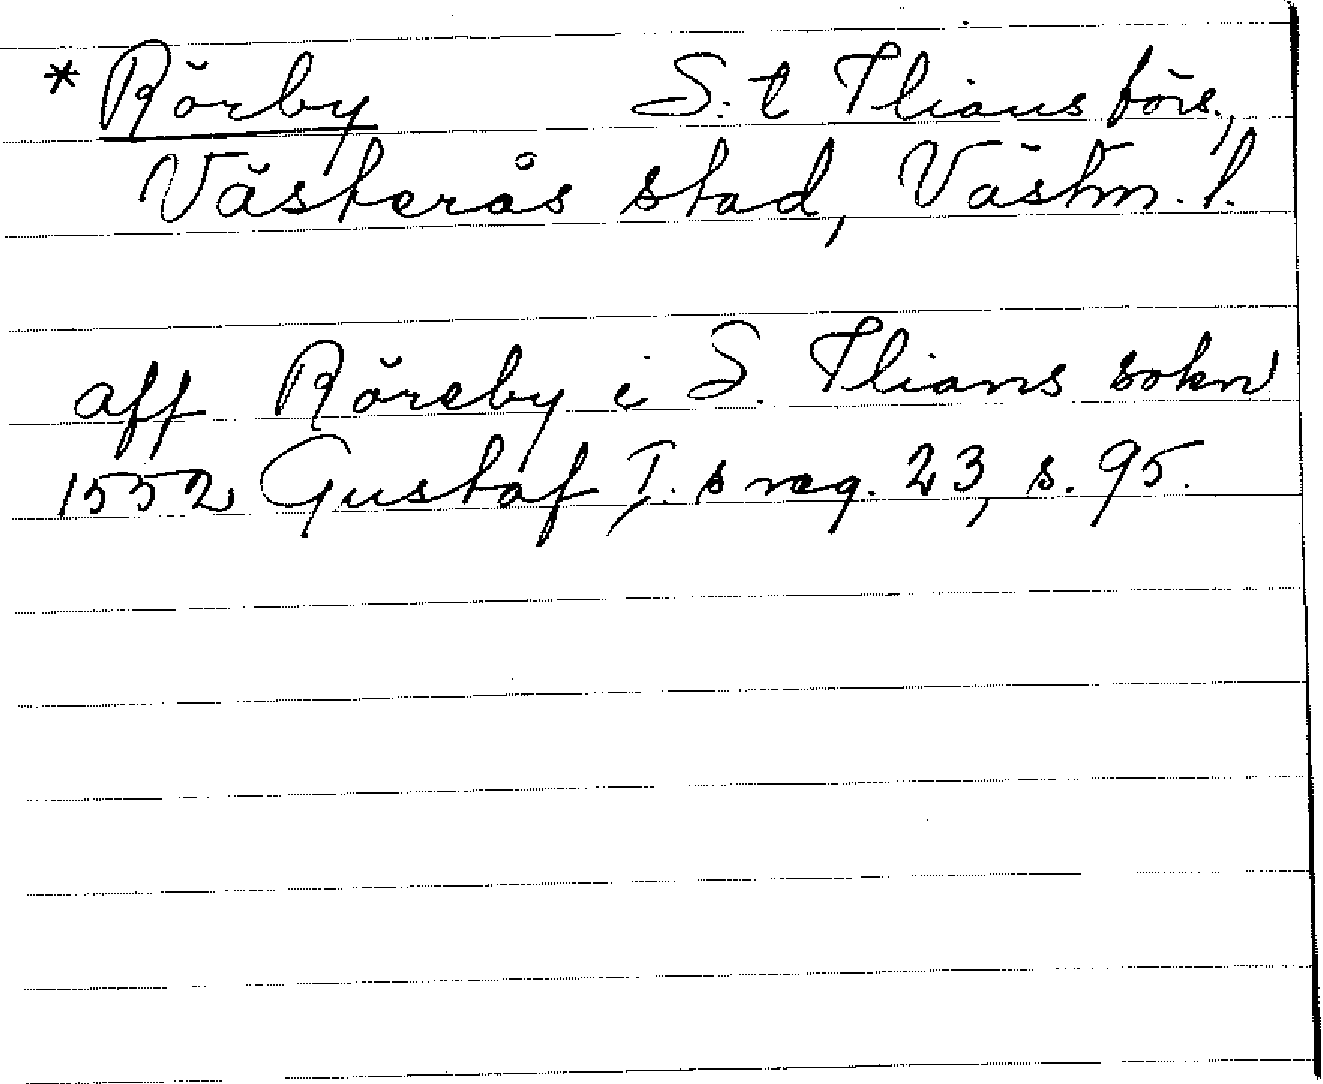 * Rörby S:t Ilians förs.,
Västerås stad, Västm. l.
aff Röreby i S. Ilians sokn
1552 Gustaf I:s reg. 23, s. 95.